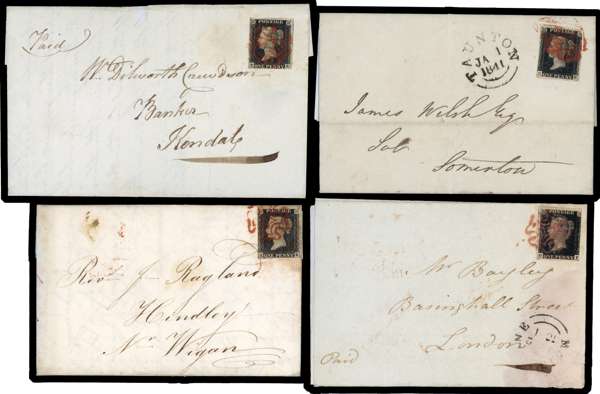 Paid
POSTAGE
ONE PENNY
Wm Dilworth Crewdson
Banker
Kendal
TAUNTON
JA 1
1841
POSTAGE
ONE PENNY
James Welsh Esq
Sol
Somerton
POSTAGE
ONE PENNY
Revd J Ragland
Hindley
Nr Wigan
POSTAGE
ONE PENNY
Mr Bayley
Basinghall Street
London
Paid